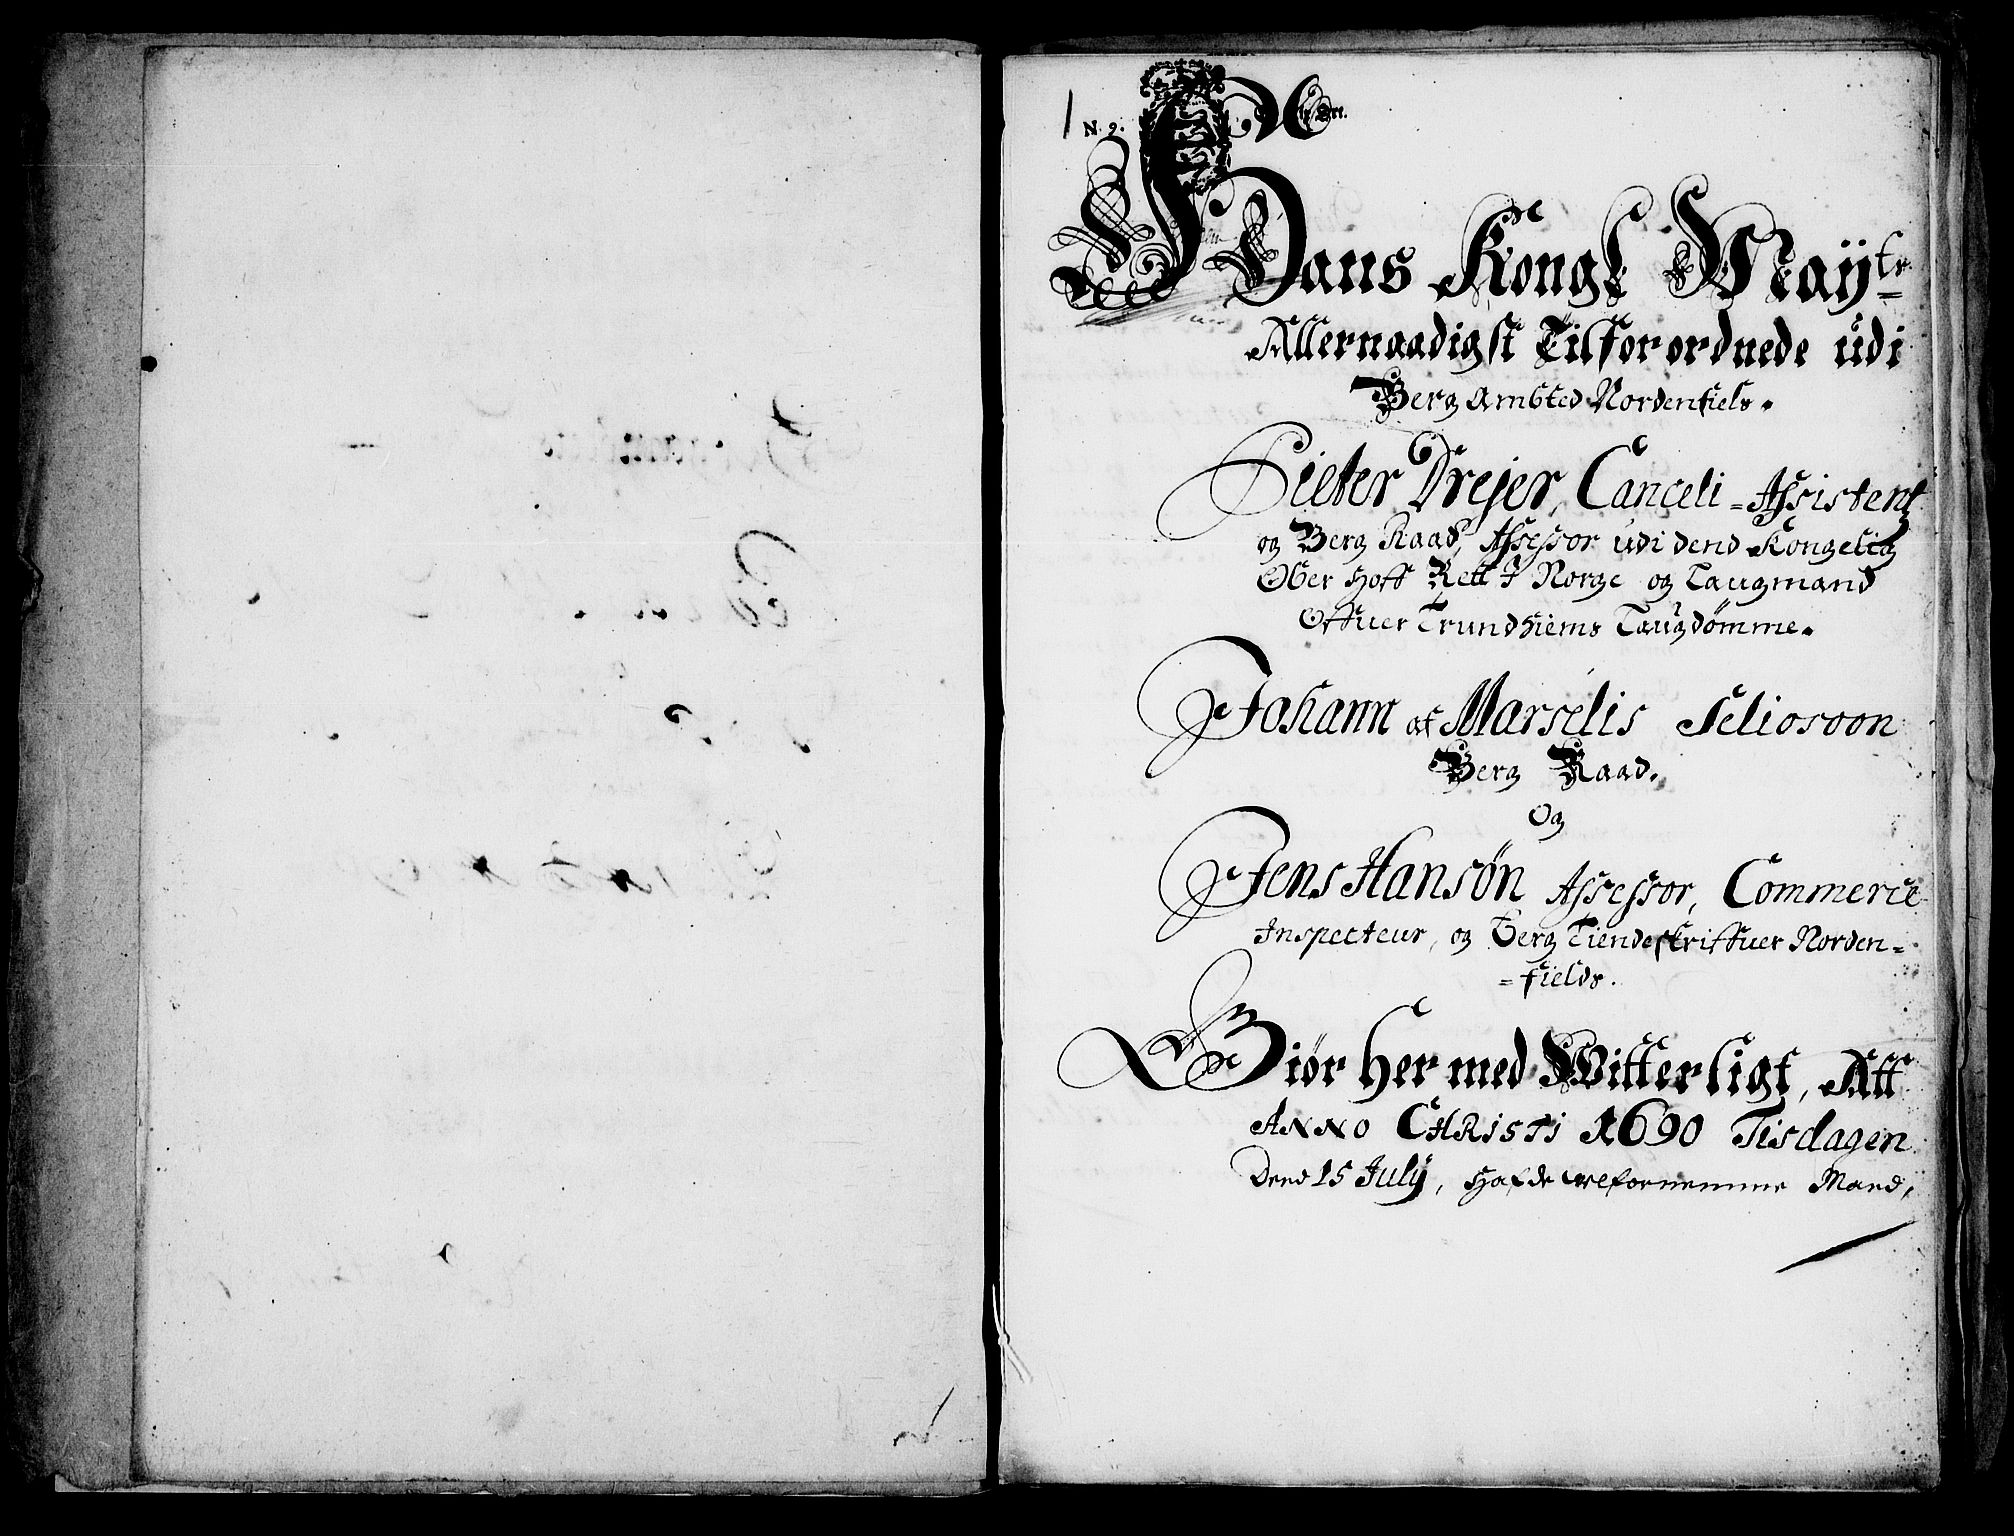 1 N. 9.
Hans Kongl Mayts
Allernaadigst Tilforordnede udi
Berg Ambted Nordenfiels.
Pieter Dreyer, Canceli-Assistent
og Berg Raad, Assessor udi dend Kongelig
Ober Hoff Rett I Norge og Laugmand
Offuer Trundhiems Laugdömme.
Johann af Marselis Seliosoon
Berg Raad.
Og
Jens Hansøn Assessor, Commerce
Inspecteur, og Berg Tiendeskriffuer Norden=
=fields.
Giør her med Witterligt, Att
ANNO CHRISTI 1690 Tisdagen
Dend 15 July, hafde welfornemme Mand,